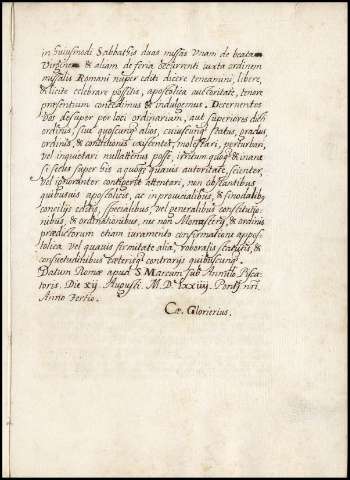 in huiusmodi Sabbathis duas missas Unam de beata
Virgine & aliam de feria occurrenti iuxta ordinem
missalis Romani nuper editi dicere teneamini, libere,
& licite celebrare possitis, apostolica auctoritate, tenore
praesentium concedimus & indulgemus. Decernentes
Vos desuper per loci ordinarium, aut superiores dicti
ordinis, siue quoscunq alios, cuiuscunq status, gradus,
ordinis, & conditionis existentes, molestari, perturbari,
vel inquietari nullatenus posse, irritum quoq & inane
si secus super his a quoq quauis autoritate, scienter,
vel ignoranter contigerit attentari, non obstantibus
quibusuis apostolicis, ac in prouincialibus, & sinodalibus
concilijs editis, specialibus, vel generalibus constitutio-
nibus, & ordinationibus, nec non Monasterij, & ordinis
praedictorum etiam iuramento confirmatione apos-
tolica vel quauis firmitate alia roboratis statutis, &
consuetudinibus caeterisq contrarijs quibuscunq.
Datum Romae apud S. Marcum sub Annulo Pisca-
toris. Die xij Augusti. M. D. lxxiiij. Pont. nri.
Anno Tertio.
Cae. Glorierius.